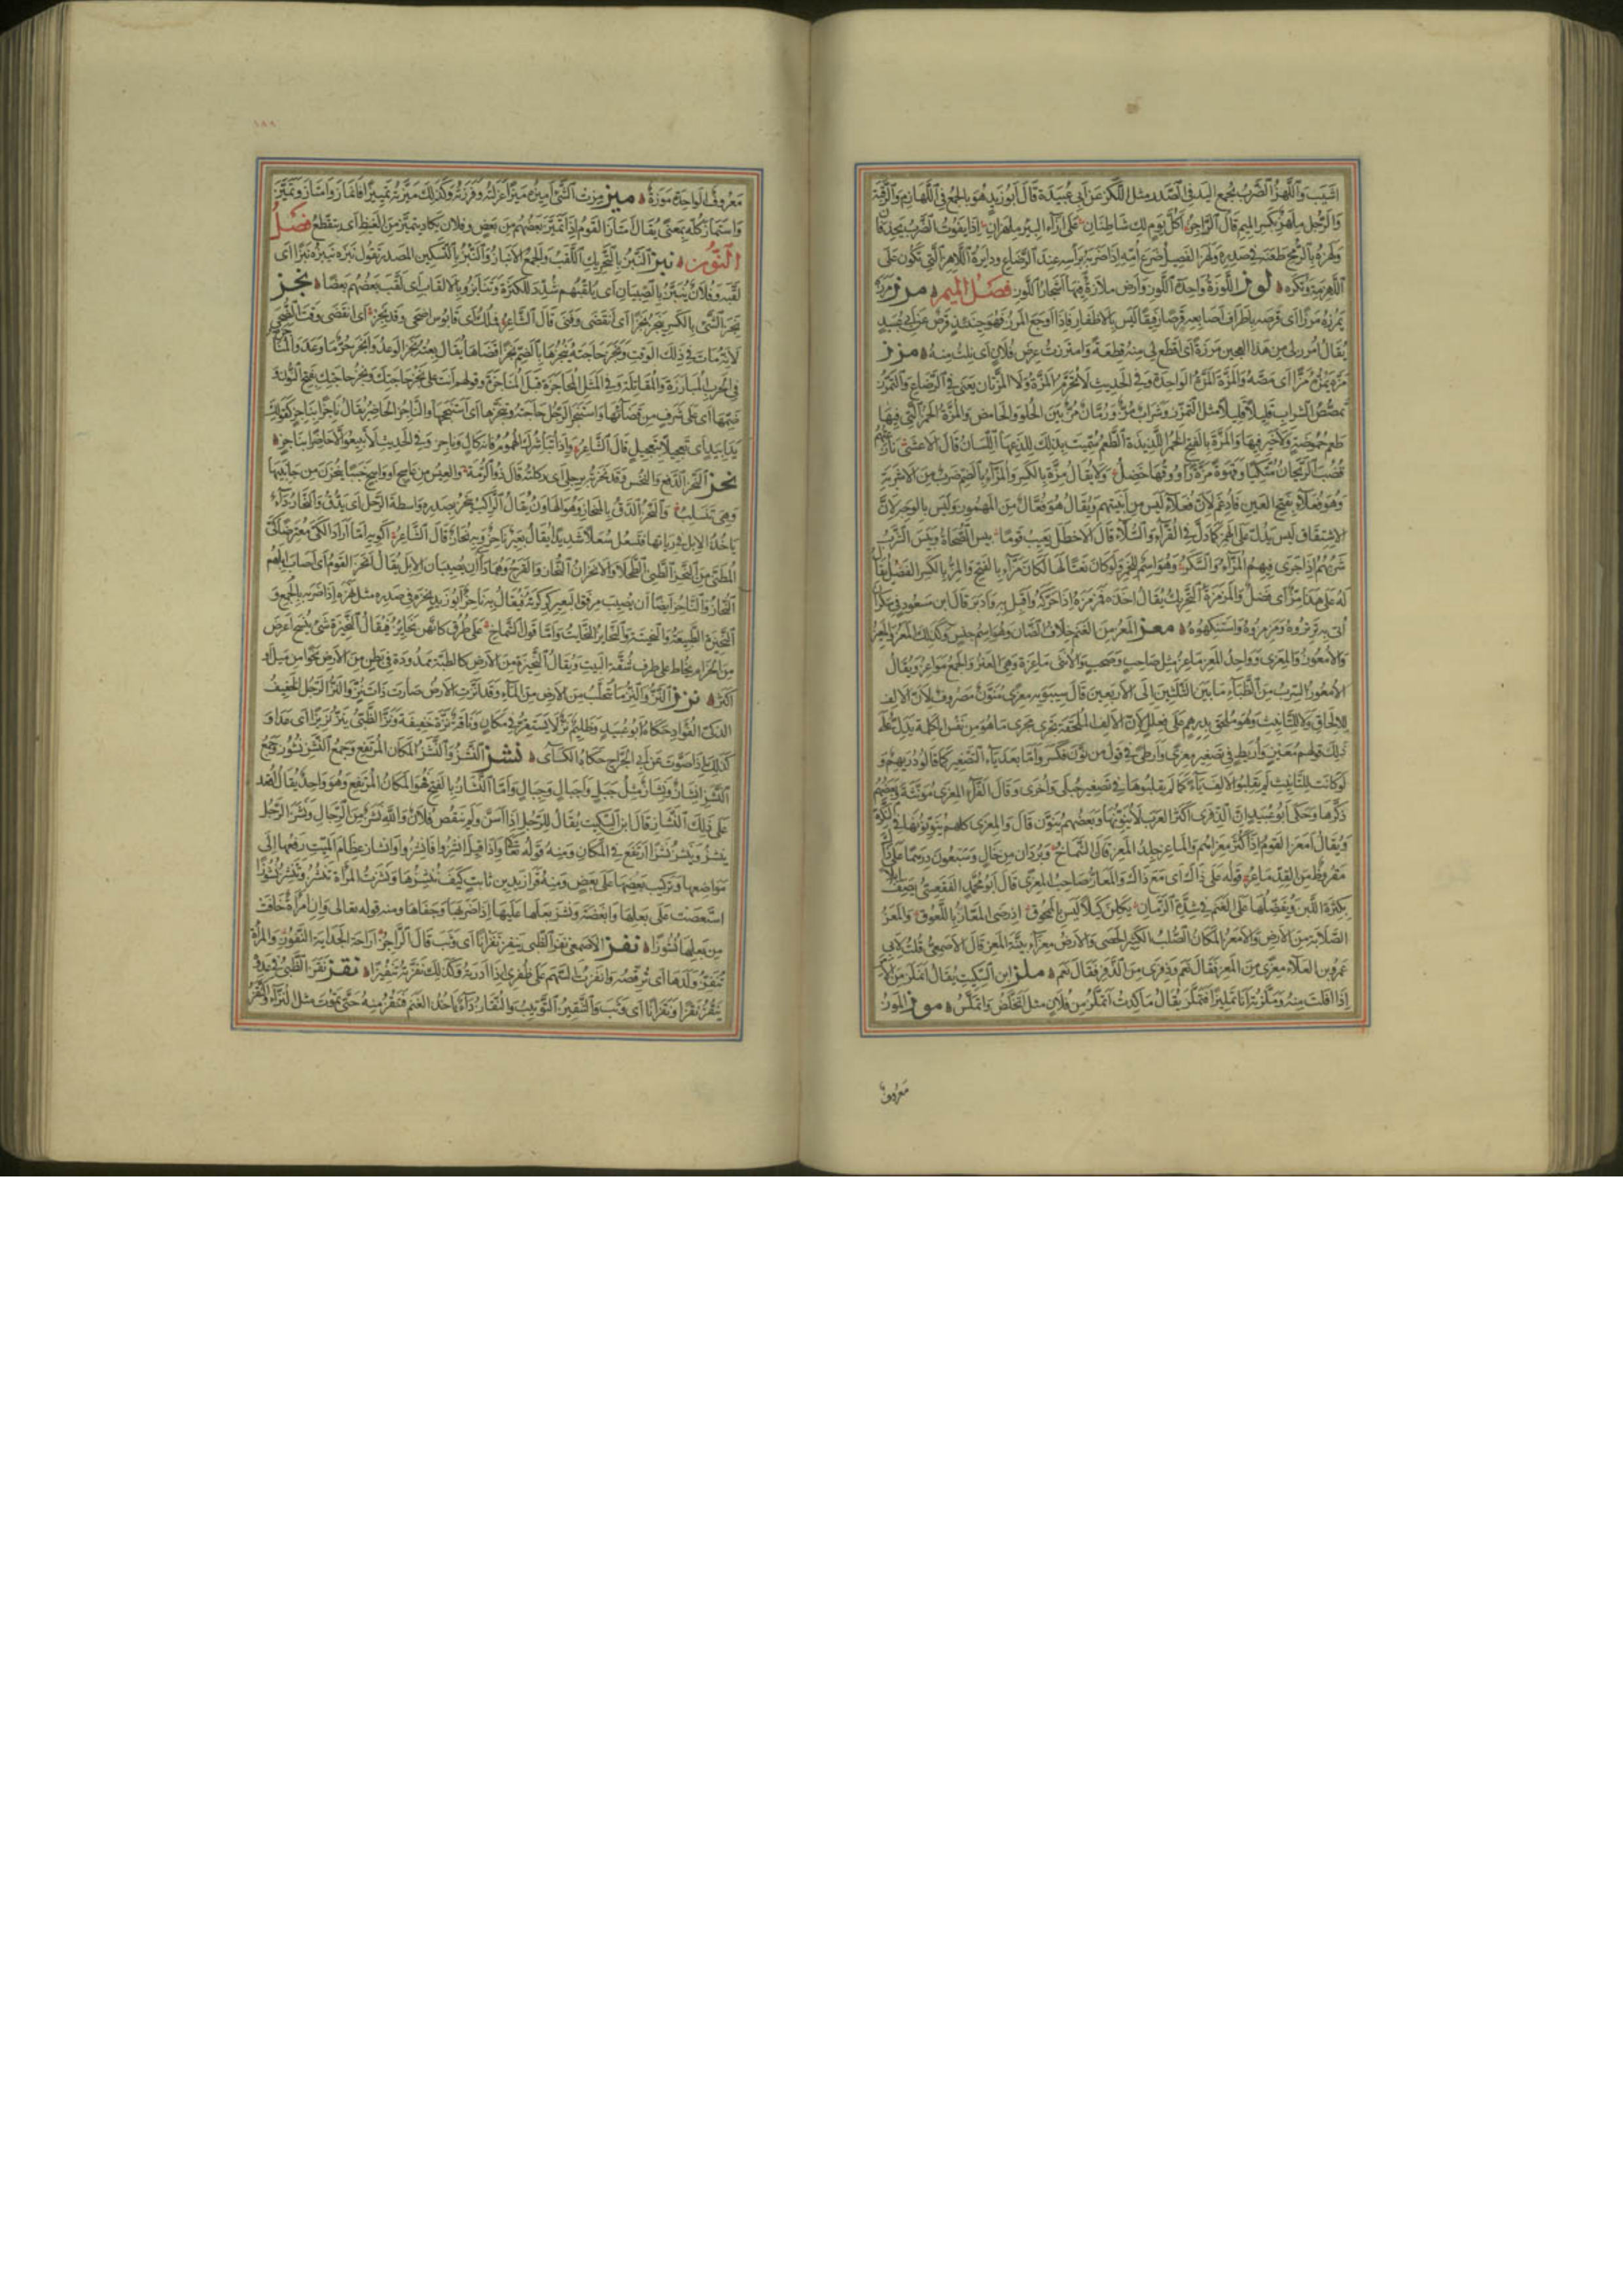 اشيب واللهز الضرب بجمع اليد في الصدر مثل اللكز عن ابي عبيدة قال ابو زيد هو بالجمع في اللهازم والرقبة
والرجل ملهز بكسر الميم قال الراجز اكل يوم لك شاطنان على ازاء البير ملهزان اذا يفوت الضرب يحذفان
ولهزه بالرمح طعنه في صدره ولهز الفصيل ضرع امه اذا ضربه براسه عند الرضاع ودايرة اللاهز التي تكون على
اللهزمة وتكره لوز اللوزة واحدة اللوز وارض ملازة فيها اشجار اللوز فصل الميم مرز مرزه
يمرزه مرزا اى قرصه باطراف اصابعه قرصا رفيقا ليس بالاظفار فاذا اوجع المرز فهو حينئذ قرص عن ابي عبيد
يقال امرز لي من هذا العجين مرزة اى اقطع لي منه قطعة وامترزت عرض فلان اى نلت منه مزز
مزه يمزه مزا اى مصه والمزة المرة الواحدة وفي الحديث لا تحرم المزة ولا المزتان يعني في الرضاع والتمزز
تمصص الشراب قليلا قليلا مثل التمزر وشراب مز ورمان مز بين الحلو والحامض والمزة الخمر التي فيها
طعم حموضة ولا خير فيها والمزة بالفتح الخمر اللذيذة الطعم سميت بذلك للذعها اللسان قال الاعشى نازعتهم
قضب الريحان متكيا وقهوة مزة راووقها خضل ولا يقال مزة بالكسر والمزاء بالضم ضرب من الاشربة
وهو فعلاء بفتح العين فادغم لان فعلاء ليس من ابنيتهم ويقال هو فعال من المهموز وليس بالوجه لان
الاشتقاق ليس يدل على الهمز كما دل في القراء والسلاء قال الاخطل يعيب قوما بيس الصحاة وبيس الشرب
شربهم اذا جرى فيهم المزاء والسكر وهو اسم للخمر ولو كان نعتا لها لكان مزاء بالفتح والمز بالكسر الفضل يقال
له على هذا مز اى فضل والمزمزة التحريك يقال اخذه فمزمزه اذا حركه واقبل به وادبر قال ابن مسعود في سكران
اتى به ترتروه ومزمزوه واستنكهوه معز المعز من الغنم خلاف الضان وهو اسم جنس وكذلك المعز والمعيز
والامعوز والمعزى وواحد المعز ماعز مثل صاحب وصحب والانثى ماعزة وهي العنز والجمع مواعز ويقال
الامعوز السرب من الظباء ما بين الثلثين الى الاربعين قال سيبويه معزى منون مصروف لان الالف
للالحاق لا للتانيث وهو ملحق بدرهم على فعلل لان الالف الملحقة تجري مجرى ما هو من نفس الكلمة يدل على
ذلك قولهم معيز واريط في تصغير معزى وارطى في قول من نون فكسروا ما بعد ياء التصغير كما قالوا دريهم و
لو كانت للتانيث لم يقلبوا الالف ياء كما لم يقلبوها في تصغير حبلى واخرى وقال الفراء المعزى مونثة وبعضهم
ذكرها وحكى ابو عبيد ان الذفرى اكثر العرب لا ينونها وبعضهم ينون قال والمعزى كلهم ينونونها في النكرة
ويقال امعز القوم اذا كثر معزاهم والماعز جلد المعز قال الشماخ وبردان من خال وسبعون درهما على ذاك
مقروظ من القد ماعز قوله على ذاك اى مع ذاك والمعاز صاحب المعزى قال ابو محمد الفقعسي يصف ابلا
بكثرة اللبن ويفضلها على الغنم في شدة الزمان يكلن كيلا ليس بالمحوق اذ رضي المعاز باللعوق والمعز
الصلابة من الارض والامعز المكان الصلب الكثير الحصى والارض معزاء بينة المعز قال الاصمعي قلت لابي
عمرو بن العلاء معزى من المعز فقال نعم وذفرى من الذفر فقال نعم ملز ابن السكيت يقال املز من الامر
اذا افلت منه وملزته انا تمليزا فتملز يقال ما كدت اتملز من فلان مثل اتخلص واتملس موز الموز
معروف
١٨٨
معروف الواحدة موزة ميز مزت الشئ اميزه ميزا عزلته وفرزته وكذلك ميزته تمييزا فانماز وامتاز وتميز
واستماز كله بمعنى يقال امتاز القوم اذا تميز بعضهم من بعض وفلان يكاد يتميز من الغيظ اى يتقطع فصل
النون نبز النبز بالتحريك اللقب والجمع الانباز والنبز بالتسكين المصدر تقول نبزه ينبزه نبزا اى
لقبه وفلان ينبز بالصبيان اى يلقبهم شدد للكثرة وتنابزوا بالالقاب اى لقب بعضهم بعضا نجز
نجز الشئ بالكسر ينجز نجزا اى انقضى وفنى قال الشاعر فملك ابي قابوس اضحى وقد نجز اى انقضى وقت الضحى
لانه مات في ذلك الوقت ونجز حاجته ينجزها بالضم نجزا قضاها يقال نجز الوعد وانجز حر ما وعد والمناجزة
في الحرب المبارزة والمقاتلة وفي المثل المحاجزة قبل المناجزة وقولهم انت على نجز حاجتك ونجز حاجتك بفتح النون و
ضمها اى على شرف من قضائها واستنجز الرجل حاجته وتنجزها اى استنجحها والناجز الحاضر يقال ناجزا بناجز كقولك
يدا بيد اى تعجيلا بتعجيل قال الشاعر واذا تباشرك الهموم فانه كال وناجز وفي الحديث لا تبيعوا الا حاضرا بناجز
نحز النحز الدفع والنخس وقد نحزته برجلي اى ركلته قال ذو الرمة والعيس من عاسج او واسج خببا ينحزن من جانبيها
وهي تنسلب والنحز الدق بالمنحاز وهو الهاون يقال الراكب ينحز بصدره واسطة الرحل اى يدق والنحاز داء
ياخذ الابل في رياتها فتسعل سعالا شديدا يقال بعير ناحز وبه نحاز قال الشاعر اكويه اما اراد الكي معترضا كي
المطنى من النحز الطنى الطحلا والانحزان النحاز والقرح وهما داآن يصيبان الابل يقال انحز القوم اى اصاب ابلهم
النحاز والناحز ايضا ان يصيب مرفق البعير كركرته فيقال به ناحز ابو زيد نحزه في صدره مثل نهزه اذا ضربه بالجمع و
النحيزة الطبيعة والنحيتة والنحائز النحائت واما قول الشماخ على طرق كانهن نحائز فيقال النحيزة شئ ينسج اعرض
من الحزام يخاط على طرف شقة البيت ويقال النحيزة من الارض كالطبة ممدودة في بطن من الارض نحوا من ميل او
اكثر نزز النز والنز ما تحلب من الارض من الماء وقد انزت الارض صارت ذات نز والنز الرجل الخفيف
الذكي الفؤاد حكاه ابو عبيد وظليم نز لا يستقر في مكان وناقة نزة خفيفة ونز الظبي ينز نزيزا اى عدا و
كذلك اذا صوت عن ابي الجراح حكاه الكساى نشز النشز والنشز المكان المرتفع وجمع النشز نشوز وجمع
النشز انشاز ونشاز مثل جبل واجبال وجبال واما النشاز بالفتح فهو المكان المرتفع وهو واحد يقال اقعد
على ذلك النشاز قال ابن السكيت يقال للرجل اذا اسن ولم ينقص فلان والله نشز من الرجال ونشز الرجل
ينشز وينشز نشزا ارتفع في المكان ومنه قوله تعالى واذا قيل انشزوا فانشزوا وانشاز عظام الميت رفعها الى
مواضعها وتركيب بعضها على بعض ومنه قرا زيد بن ثابت كيف ننشزها ونشزت المراة تنشز وتنشز نشوزا
استعصت على بعلها وابغضته ونشز بعلها عليها اذا ضربها وجفاها ومنه قوله تعالى وان امراة خافت
من بعلها نشوزا نفز الاصمعي نفز الظبي ينفز نفزانا اى وثب قال الراجز اراحة الجداية النفوز والمراة
تنفز ولدها اى ترقصه وانفزت السهم على ظفري اذا ادرته وكذلك نفزته تنفيزا نقز نقز الظبي في عدوه
ينقز نقزا ونقزانا اى وثب والتنقيز التوثيب والنقاز داء ياخذ الغنم فتنقز منه حتى تموت مثل النزاء والنقز